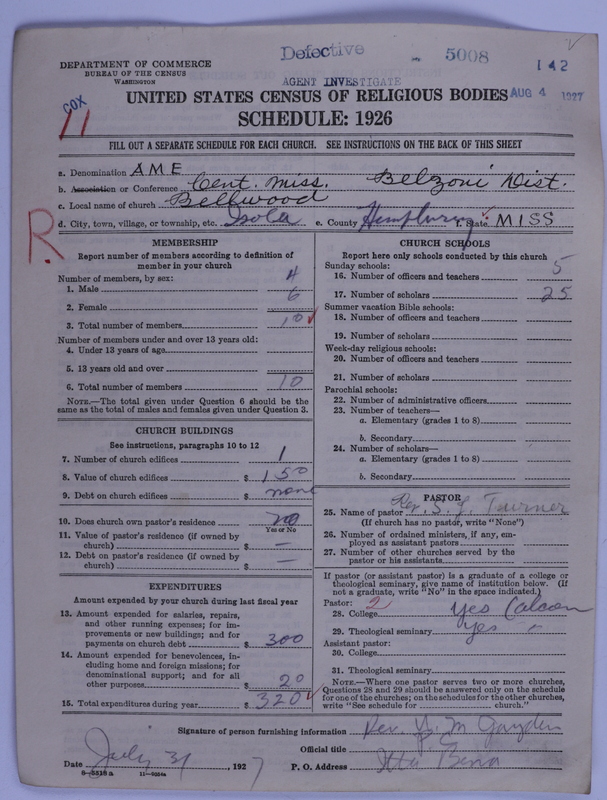 Defective 5008 142
DEPARTMENT OF COMMERCE
BUREAU OF THE CENSUS
WASHINGTON
AGENT INVESTIGATE
AUG 4 1927
COX
11
UNITED STATES CENSUS OF RELIGIOUS BODIES
SCHEDULE: 1926
FILL OUT A SEPARATE SCHEDULE FOR EACH CHURCH. SEE INSTRUCTIONS ON THE BACK OF THIS SHEET
a. Denomination A M E
b. Association or Conference Cent. Miss. Belzoni Dist.
c. Local name of church Bellwood
d. City, town, village, or township, etc. Isola e. County Humphreys f. State MISS
R.
MEMBERSHIP
Report number of members according to definition of
member in your church
Number of members, by sex:
1. Male 4
2. Female 6
3. Total number of members 10
Number of members under and over 13 years old:
4. Under 13 years of age
5. 13 years old and over
6. Total number of members 10
NOTE.—The total given under Question 6 should be the
same as the total of males and females given under Question 3.
CHURCH BUILDINGS
See instructions, paragraphs 10 to 12
7. Number of church edifices 1
8. Value of church edifices $ 150
9. Debt on church edifices $ none
10. Does church own pastor's residence no
Yes or No
11. Value of pastor's residence (if owned by
church) $ —
12. Debt on pastor's residence (if owned by
church) $ —
EXPENDITURES
Amount expended by your church during last fiscal year
13. Amount expended for salaries, repairs,
and other running expenses; for im-
provements or new buildings; and for
payments on church debt $ 300
14. Amount expended for benevolences, in-
cluding home and foreign missions; for
denominational support; and for all
other purposes $ 20
15. Total expenditures during year $ 320
CHURCH SCHOOLS
Report here only schools conducted by this church
Sunday schools:
16. Number of officers and teachers 5
17. Number of scholars 25
Summer vacation Bible schools:
18. Number of officers and teachers
19. Number of scholars
Week-day religious schools:
20. Number of officers and teachers
21. Number of scholars
Parochial schools:
22. Number of administrative officers
23. Number of teachers—
a. Elementary (grades 1 to 8)
b. Secondary
24. Number of scholars—
a. Elementary (grades 1 to 8)
b. Secondary
PASTOR
25. Name of pastor Rev. S. J. Turner
(If church has no pastor, write "None")
26. Number of ordained ministers, if any, em-
ployed as assistant pastors
27. Number of other churches served by the
pastor or his assistants
If pastor (or assistant pastor) is a graduate of a college or
theological seminary, give name of institution below. (If
not a graduate, write "No" in the space indicated.)
Pastor: 2
28. College yes
29. Theological seminary yes
Assistant pastor:
30. College
31. Theological seminary
NOTE.—Where one pastor serves two or more churches,
Questions 28 and 29 should be answered only on the schedule
for one of the churches; on the schedules for the other churches,
write "See schedule for church."
Signature of person furnishing information Rev. M
Official title
Date July 31, 1927 P. O. Address Itta Bena
8—5810a 11—9034a